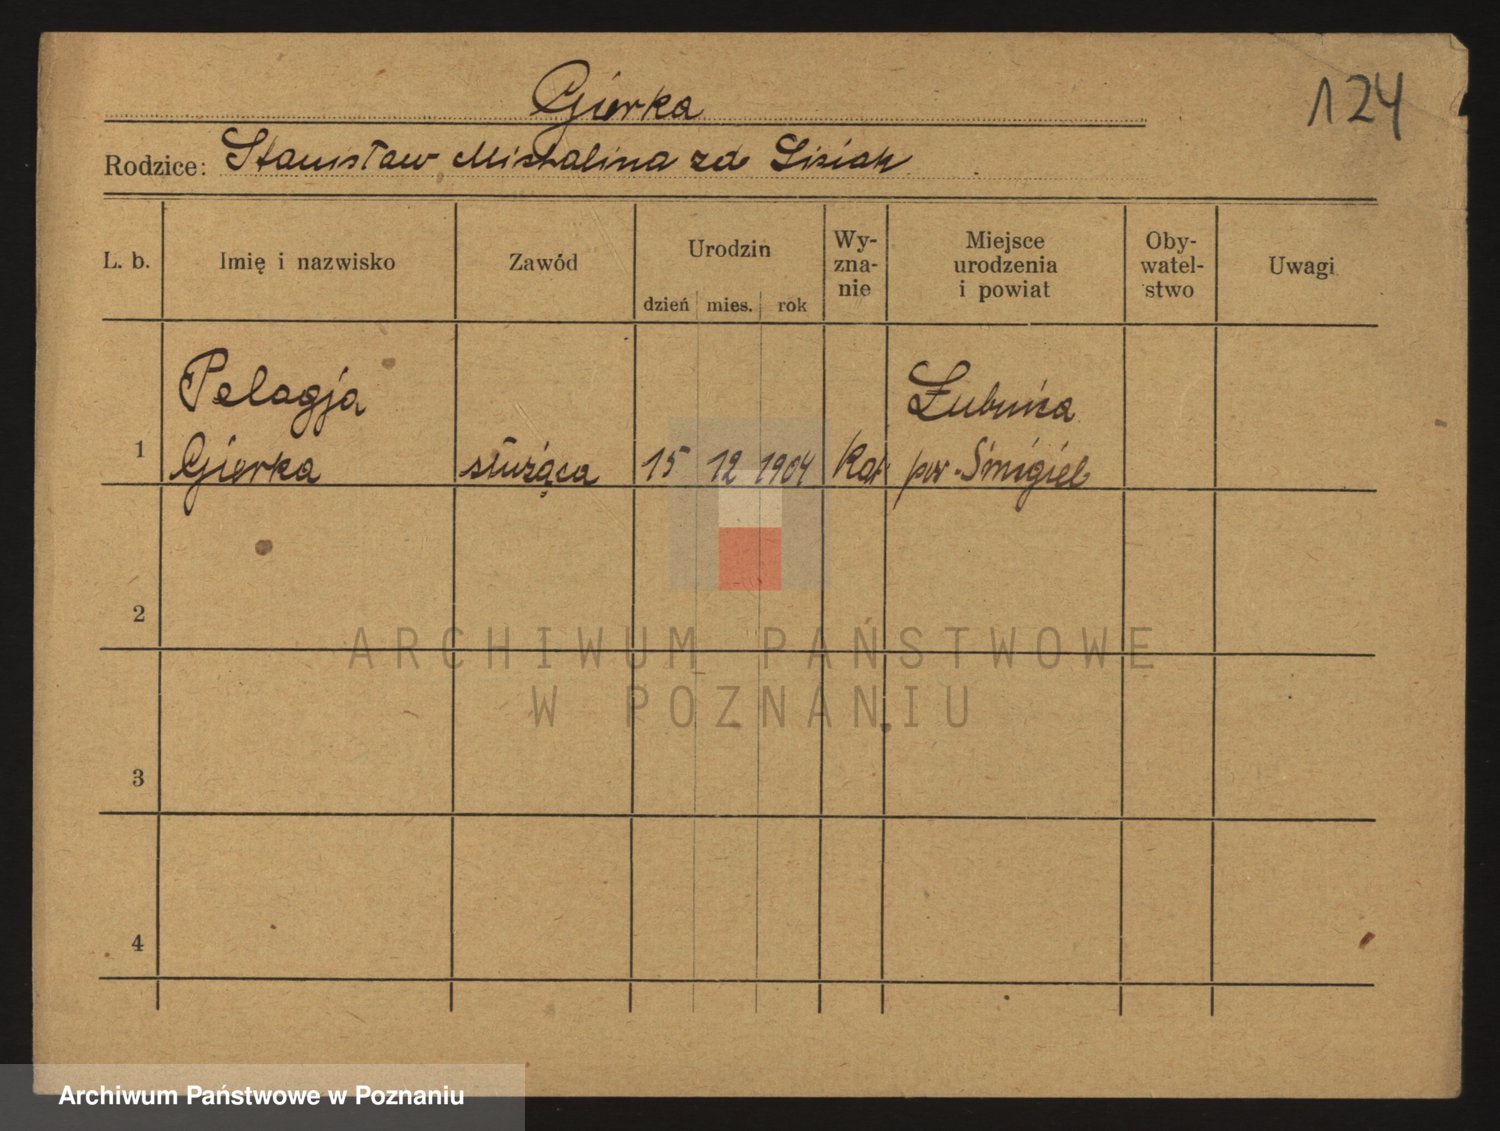 Gierka
124
Rodzice: Stanisław Michalina zd Lisiak
L. b.
Imię i nazwisko
Zawód
Urodzin
dzień mies. rok
Wy-
zna-
nie
Miejsce
urodzenia
i powiat
Oby-
watel-
stwo
Uwagi
Pelagja
1 Gierka służąca 15 12 1904 Kat pow. Śmigiel
2
3
4
ARCHIWUM PAŃSTWOWE
W POZNANIU
Archiwum Państwowe w Poznaniu